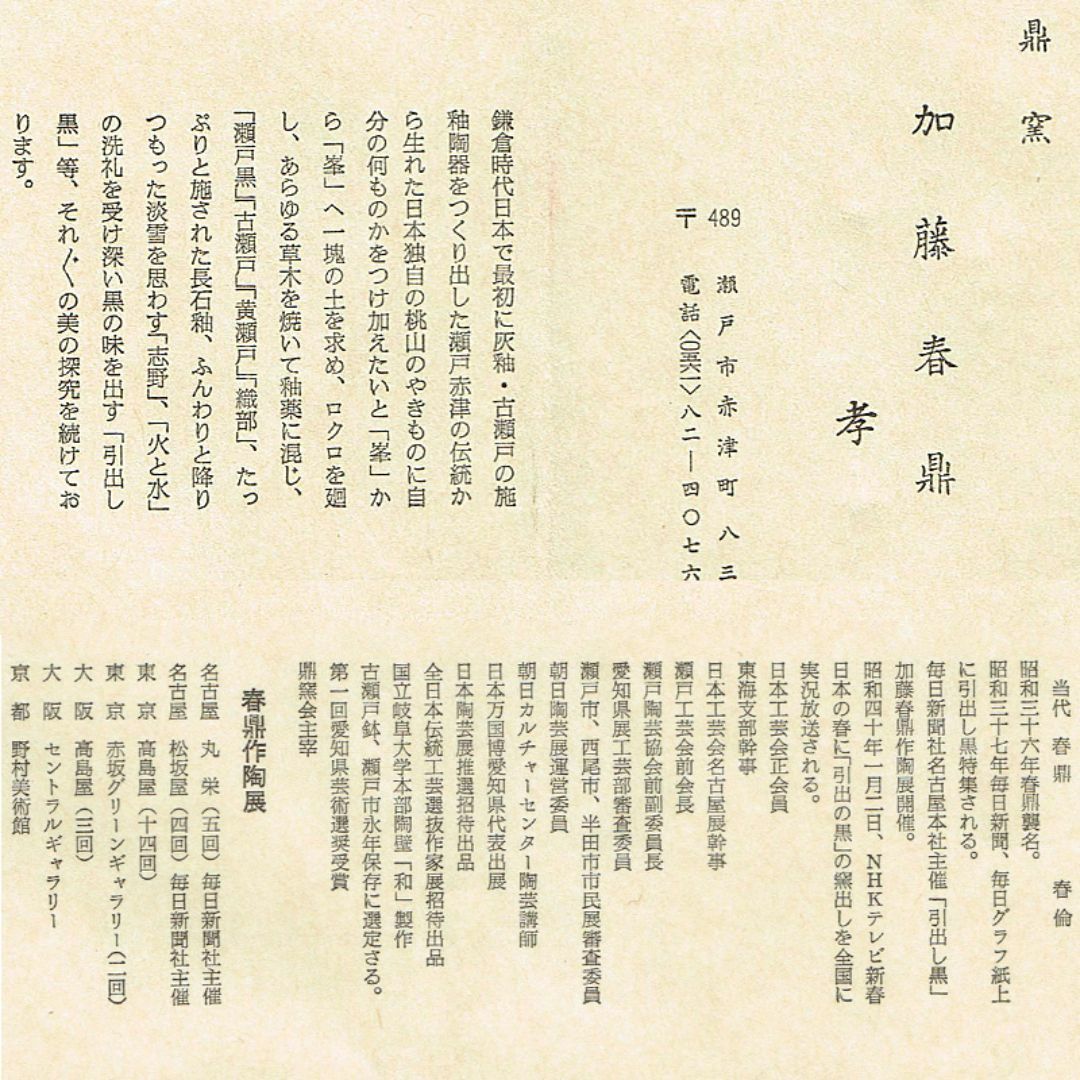 鼎窯
加藤春鼎
孝
〒489 瀬戸市赤津町八三
電話〈〇五六一〉八二―四〇七六
鎌倉時代日本で最初に灰釉・古瀬戸の施
釉陶器をつくり出した瀬戸赤津の伝統か
ら生れた日本独自の桃山のやきものに自
分の何ものかをつけ加えたいと「峯」か
ら「峯」へ一塊の土を求め、ロクロを廻
し、あらゆる草木を焼いて釉薬に混じ、
「瀬戸黒」「古瀬戸」「黄瀬戸」「織部」、たっ
ぷりと施された長石釉、ふんわりと降り
つもった淡雪を思わす「志野」、「火と水」
の洗礼を受け深い黒の味を出す「引出し
黒」等、それ〲の美の探究を続けてお
ります。
当代 春鼎 春倫
昭和三十六年春鼎襲名。
昭和三十七年毎日新聞、毎日グラフ紙上
に引出し黒特集される。
毎日新聞社名古屋本社主催「引出し黒」
加藤春鼎作陶展開催。
昭和四十年一月二日、NHKテレビ新春
日本の春に「引出の黒」の窯出しを全国に
実況放送される。
日本工芸会正会員
東海支部幹事
日本工芸会名古屋展幹事
瀬戸工芸会前会長
瀬戸陶芸協会前副委員長
愛知県展工芸部審査委員
瀬戸市、西尾市、半田市市民展審査委員
朝日陶芸展運営委員
朝日カルチャーセンター陶芸講師
日本万国博愛知県代表出展
日本陶芸展推選招待出品
全日本伝統工芸選抜作家展招待出品
国立岐阜大学本部陶壁「和」製作
古瀬戸鉢、瀬戸市永年保存に選定さる。
第一回愛知県芸術選奨受賞
鼎窯会主宰
春鼎作陶展
名古屋 丸栄(五回)毎日新聞社主催
名古屋 松坂屋(四回)毎日新聞社主催
東京 高島屋(十四回)
東京 赤坂グリーンギャラリー(二回)
大阪 高島屋(三回)
大阪 セントラルギャラリー
京都 野村美術館